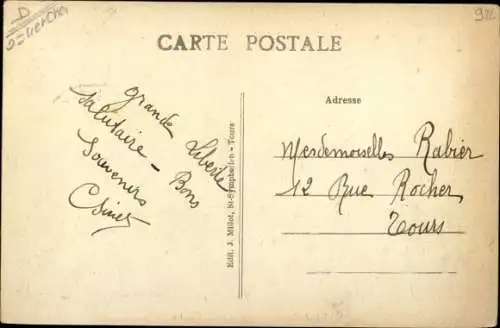 CARTE POSTALE
Grande Liberté
salutaire - Bons
Souvenirs
Edit. J. Millot, St-Symphorien-Tours
Adresse
Mesdemoiselles Rabier
12 Rue Rocher
Tours